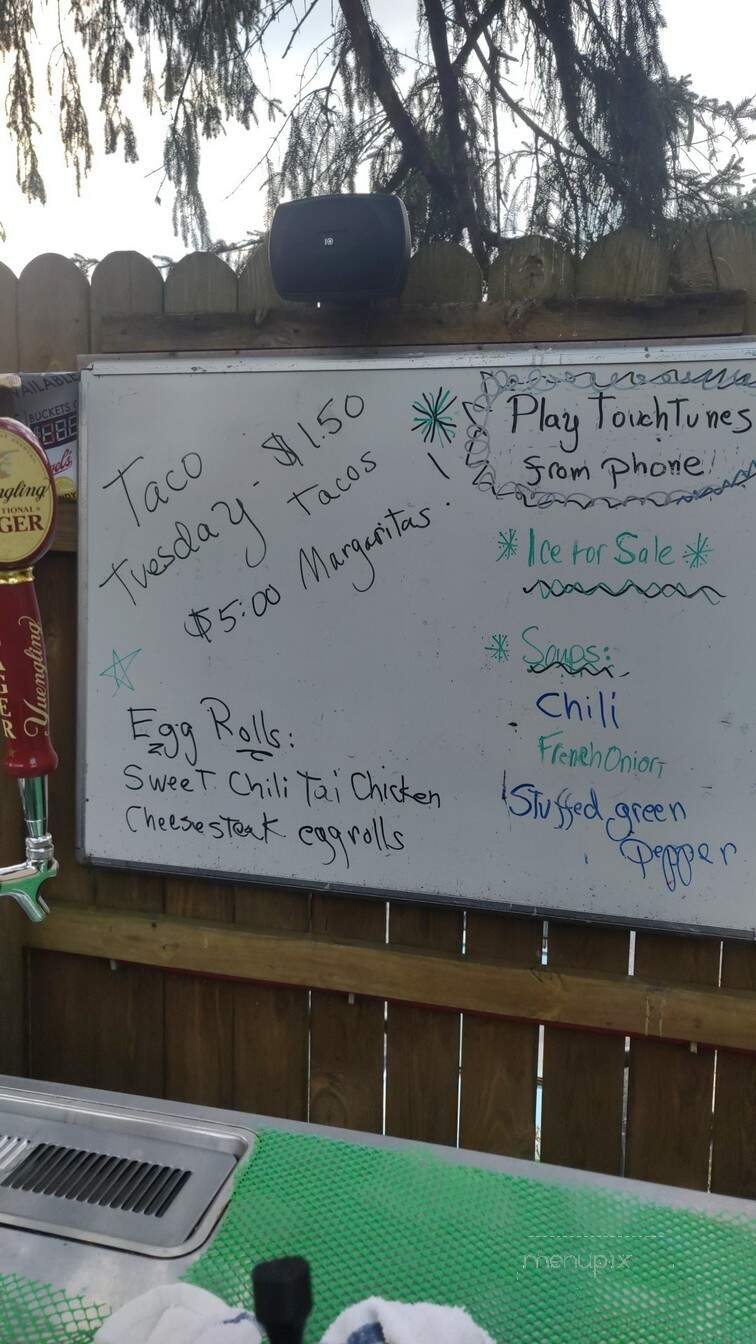 Taco
Tuesday - $1.50
Tacos
$5:00 Margaritas.
Egg Rolls:
Sweet Chili Tai Chicken
Cheesesteak eggrolls
Play TouchTunes
from phone!
Ice For Sale
Soups:
Chili
French Onion
Stuffed green
Pepper
AILABLE
BUCKETS
ngling
TIONAL
GER
Yuengling
AGER
menupix